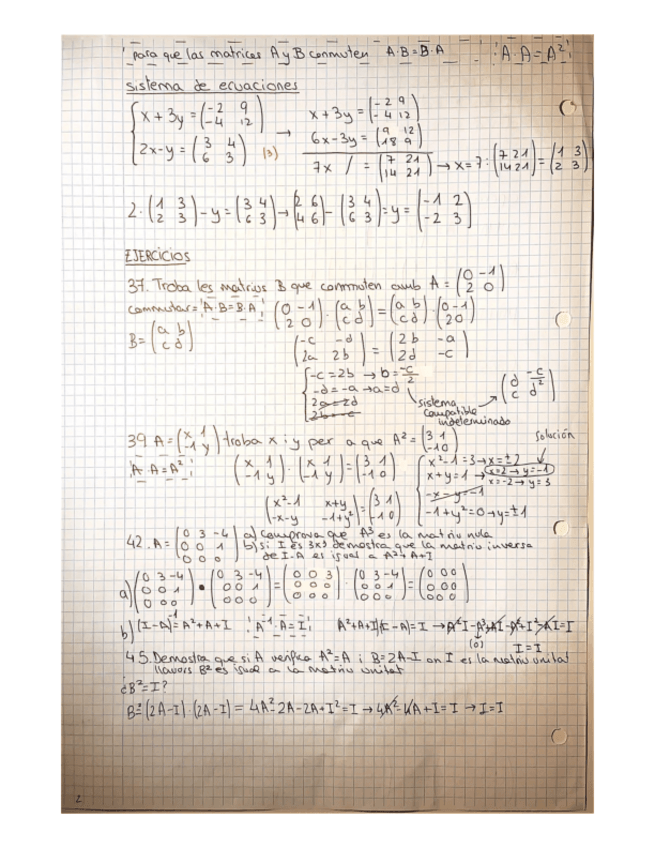 ¡para que las matrices A y B conmuten A·B=B·A ¡A·A=A²!
Sistema de ecuaciones
{x+3y=(-2 9 / -4 12) → x+3y=(-2 9 / -4 12)
{2x-y=(3 4 / 6 3) (3) 6x-3y=(9 12 / 18 9)
7x / =(7 21 / 14 21) → x=7:(7 21 / 14 21)=(1 3 / 2 3)
2·(1 3 / 2 3)-y=(3 4 / 6 3)→(2 6 / 4 6)-(3 4 / 6 3)=y=(-1 2 / -2 3)
EJERCICIOS
37. Troba les matrius B que commuten amb A=(0 -1 / 2 0)
commutar=¡A·B=B·A! (0 -1 / 2 0)·(a b / c d)=(a b / c d)·(0 -1 / 2 0)
B=(a b / c d) (-c -d / 2a 2b)=(2b -a / 2d -c)
{-c=2b → b=-c/2
-d=-a→a=d
2a=2d
2b=-c
sistema compatible indeterminado
(d -c/2 / c d)
39 A=(x 1 / -1 y) troba x i y per a que A²=(3 1 / -1 0) Solución
¡A·A=A²! (x 1 / -1 y)·(x 1 / -1 y)=(3 1 / -1 0) {x²-1=3→x=±2
x+y=1 → x=2→y=-1
x=-2→y=3
-x-y=-1
(x²-1 x+y / -x-y -1+y²)=(3 1 / -1 0) -1+y²=0→y=±1
42. A=(0 3 -4 / 0 0 1 / 0 0 0) a) Comprova que A³ es la matriu nula
b) Si I es 3x3 demostra que la matriu inversa
de I-A es igual a A²+A+I
a)(0 3 -4 / 0 0 1 / 0 0 0)·(0 3 -4 / 0 0 1 / 0 0 0)=(0 0 3 / 0 0 0 / 0 0 0)·(0 3 -4 / 0 0 1 / 0 0 0)=(0 0 0 / 0 0 0 / 0 0 0)
b)(I-A)⁻¹=A²+A+I ¡A⁻¹·A=I! (A²+A+I)(I-A)=I →A²I-A³+AI-A²+I²-AI=I
(0) I=I
45. Demostra que si A verifica A²=A i B=2A-I on I es la matriu unitat
llavors B² es igual a la matriu unitat
¿B²=I?
B²=(2A-I)·(2A-I)=4A²-2A-2A+I²=I→4A²-4A+I=I →I=I
2